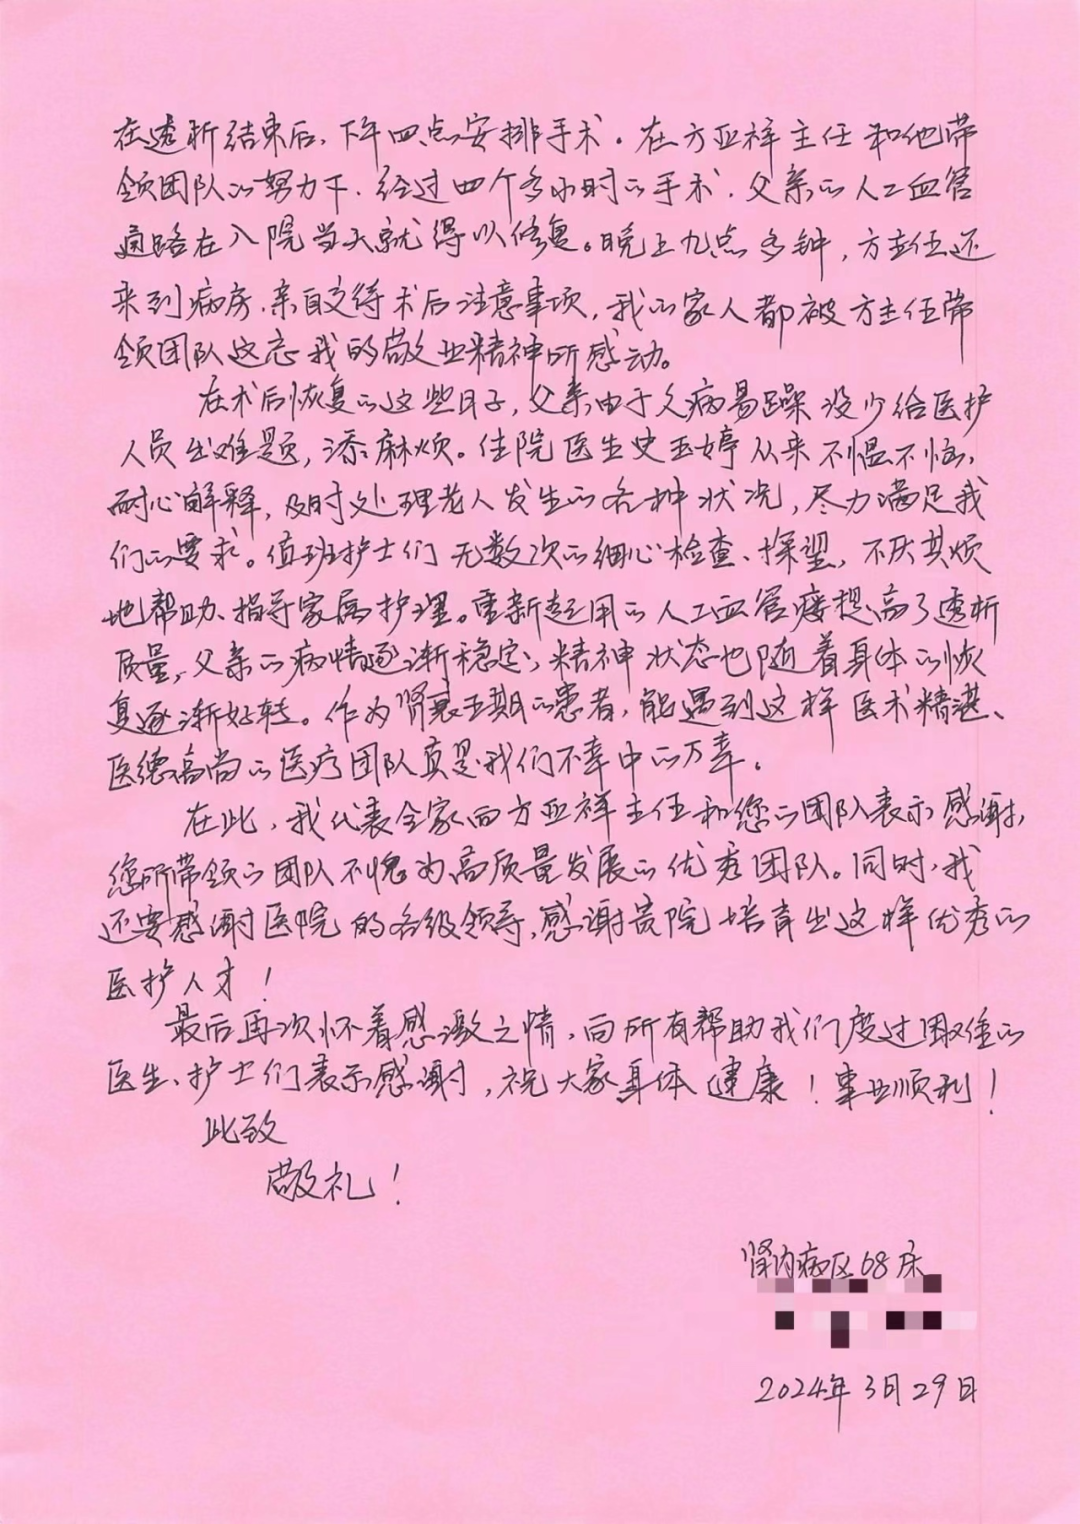 在透析结束后，下午四点安排手术。在方亚祥主任和他带
领团队的努力下，经过四个多小时的手术，父亲的人工血管
通路在入院当天就得以修复。晚上九点多钟，方主任还
来到病房，亲自交待术后注意事项，我的家人都被方主任带
领团队这忘我的敬业精神所感动。
在术后恢复的这些日子，父亲由于久病易躁没少给医护
人员出难题，添麻烦。住院医生史玉婷从来不愠不恼，
耐心解释，及时处理老人发生的各种状况，尽力满足我
们的要求。值班护士们无数次的细心检查、探望，不厌其烦
地帮助、指导家属护理。重新起用的人工血管瘘提高了透析
质量，父亲的病情逐渐稳定，精神状态也随着身体的恢
复逐渐好转。作为肾衰五期的患者，能遇到这样医术精湛、
医德高尚的医疗团队真是我们不幸中的万幸。
在此，我代表全家向方亚祥主任和您的团队表示感谢，
您所带领的团队不愧为高质量发展的优秀团队。同时，我
还要感谢医院的各级领导，感谢贵院培育出这样优秀的
医护人才！
最后再次怀着感激之情，向所有帮助我们度过困难的
医生、护士们表示感谢，祝大家身体健康！事业顺利！
此致
敬礼！
肾内病区68床
2024年3月29日